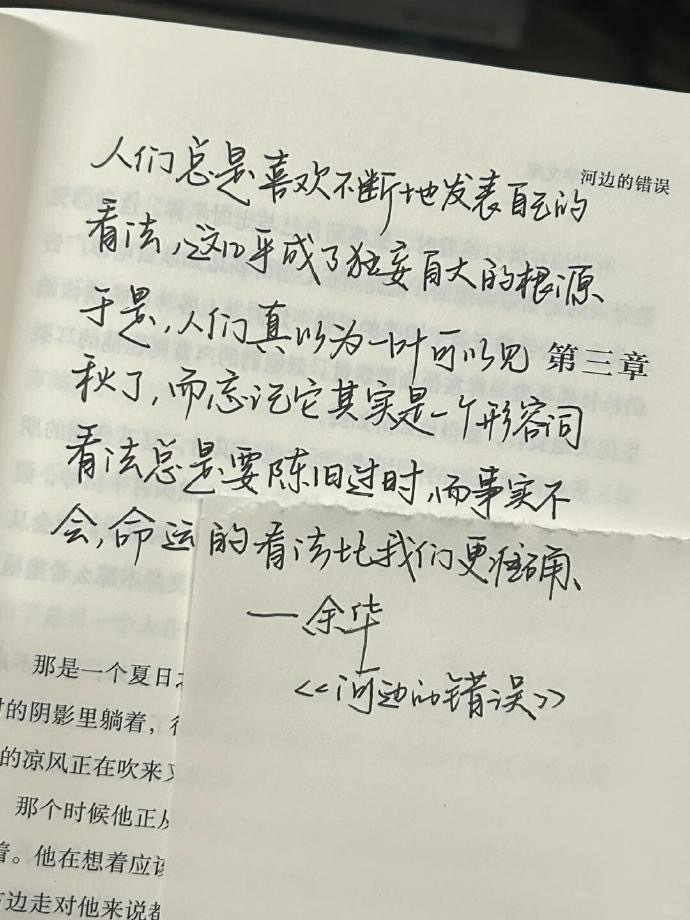 河边的错误
人们总是喜欢不断地发表自己的
看法,这几乎成了狂妄自大的根源
于是,人们真以为一叶可以见
第三章
秋了,而忘记它其实是一个形容词
看法总是要陈旧过时,而事实不
会,命运的看法比我们更准确、
——余华
<<河边的错误>>
那是一个夏日
的阴影里躺着,
的凉风正在吹来
那个时候他正
着。他在想着应该
边走对他来说都